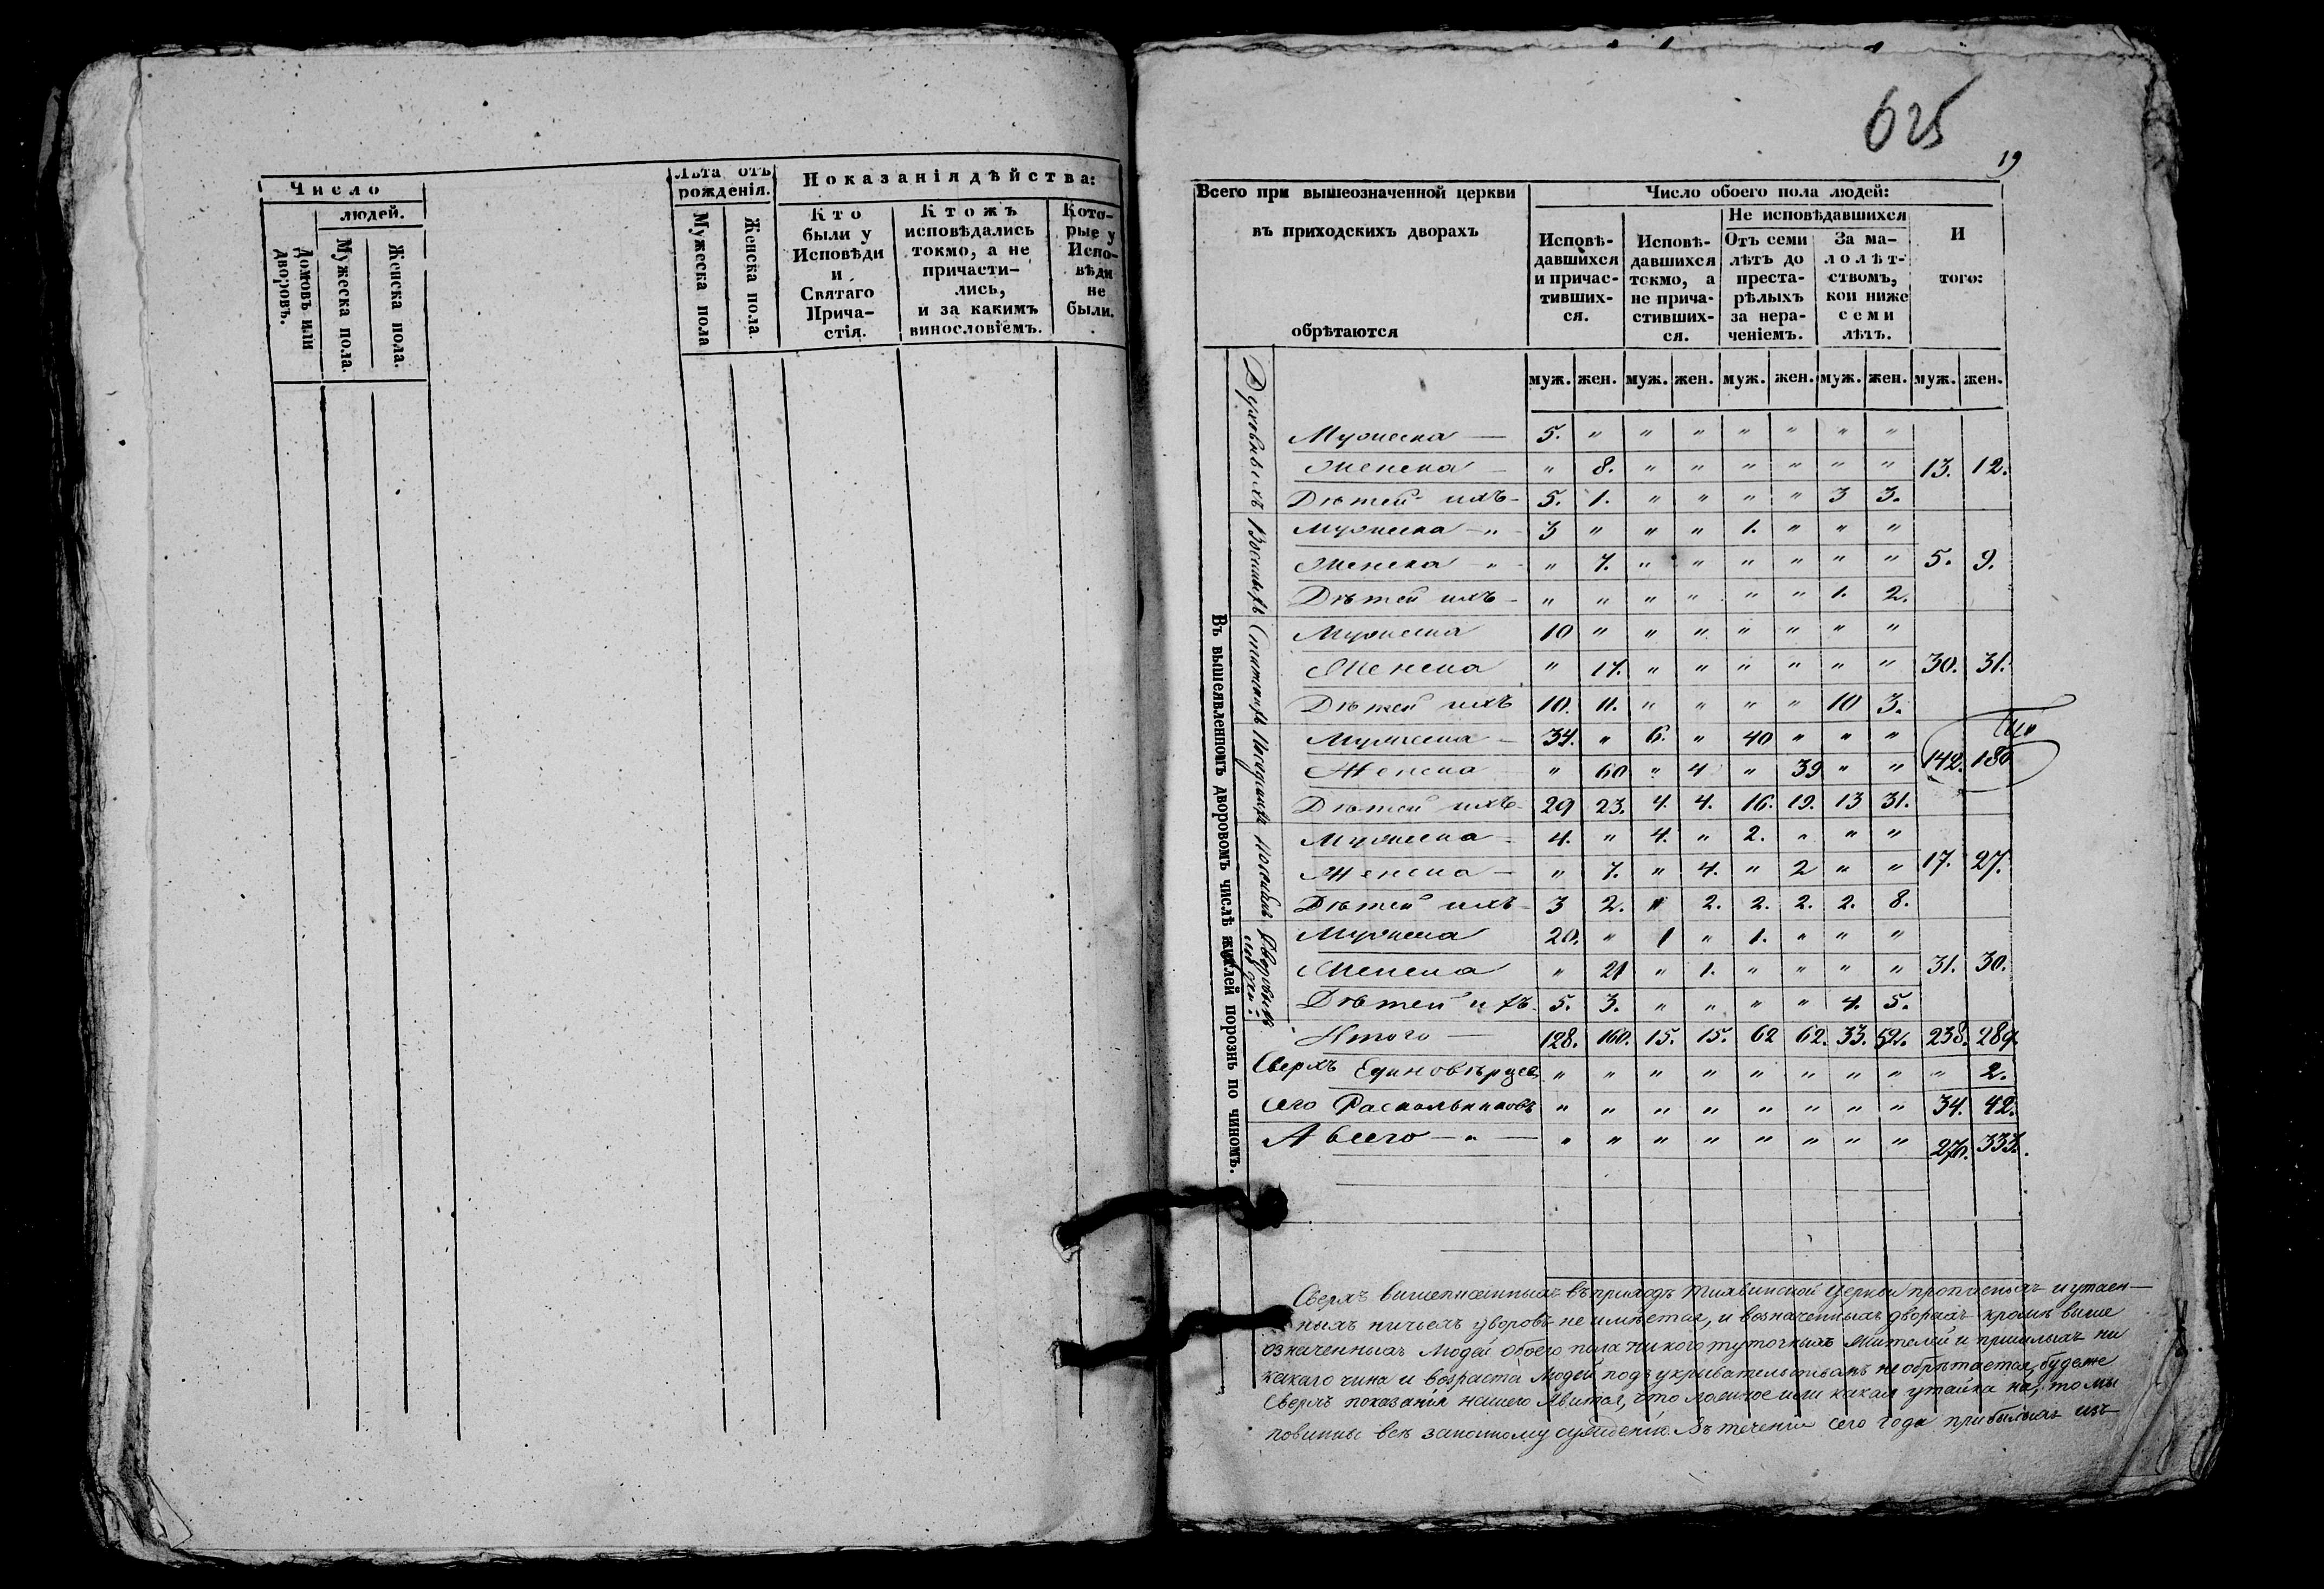 Число
людей.
Домовъ или дворовъ.
Мужеска пола.
Женска пола.
Лѣта отъ
рожденія.
Мужеска пола
Женска пола
Показанія дѣйства:
Кто
были у
Исповѣди
и
Святаго
Прича-
стія.
Ктожъ
исповѣдались
токмо, а не
причасти-
лись,
и за какимъ
винословіемъ.
Кото-
рые у
Испо-
вѣди
не
были.
625
19
Всего при вышеозначенной церкви
въ приходскихъ дворахъ
обрѣтаются
Число обоего пола людей:
Исповѣ-
давшихся
и причас-
тивших-
ся.
Исповѣ-
давшихся
токмо, а
не прича-
стивших-
ся.
Не исповѣдавшихся
Отъ семи
лѣтъ до
преста-
рѣлыхъ
за нера-
ченіемъ.
За ма-
лолѣт-
ствомъ,
кои ниже
семи
лѣтъ.
И
того:
муж. жен. муж. жен. муж. жен. муж. жен. муж. жен.
Въ вышеявленномъ дворовомъ числѣ жителей порознь по чиномъ.
Духовныхъ
Мужеска — 5. " " " " " " "
Женска — " 8. " " " " " " 13. 12.
Дѣтей ихъ - 5. 1. " " " " 3 3.
Военныхъ
Мужеска - " - 3 " " " 1. " " "
Женска - " - " 7. " " " " " " 5. 9.
Дѣтей ихъ - " " " " " " 1. 2.
Статскихъ
Мужеска 10 " " " " " " "
Женска " 17. " " " " " " 30. 31.
Дѣтей ихъ 10. 11. " " " " 10 3.
Мужеска - 34. " 6. " 40 " " "
Женска " 60 " 4 " 39 " " 142. 180
Дѣтей ихъ - 29 23. 4. 4. 16. 19. 13 31.
Мужеска - 4. " 4. " 2. " " "
Женска - " 7. " 4. " 2 " " 17. 27.
Дѣтей ихъ - 3 2. " 2. 2. 2. 2. 8.
Дворовыхъ людей.
Мужеска 20. " 1 " 1. " " "
Женска " 21 " 1. " " " " 31. 30.
Дѣтей ихъ 5. 3. " " " " 4. 5.
Итого — 128. 160. 15. 15. 62 62. 33. 52. 238. 289.
Сверхъ Единовѣрцев " " " " " " " " " 2.
сего Раскольниковъ " " " " " " " " 34. 42.
А всего - " - " " " " " " " " 270. 333.
Сверхъ вышеписанныхъ въ приходѣ Тихвинской церкви прописныхъ и утаен-
ныхъ ничьихъ дворовъ не имѣется, и в означенныхъ дворахъ кромѣ выше
означенныхъ людей обоего пола никого туточныхъ жителей и пришлыхъ ни
какаго чина и возраста людей подъ укрывательствомъ не обрѣтается, будеже
сверхъ показанія нашего явится, что ложное или какая утайка на, то мы
повинны всѣ законному сужденію. Въ теченіи сего года прибылыхъ изъ